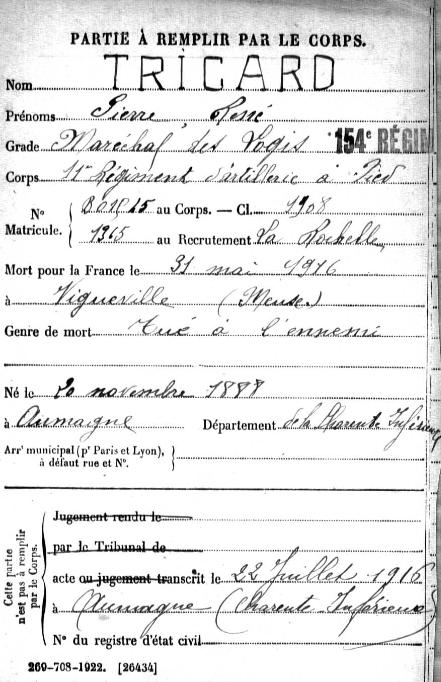 PARTIE À REMPLIR PAR LE CORPS.
Nom TRICARD
Prénoms Pierre René
Grade Maréchal des Logis 154e RÉGIM
Corps 11e Régiment d'artillerie à Pied
No Matricule. au Corps. — Cl. 1908
1365 au Recrutement La Rochelle
Mort pour la France le 31 mai 1916
à Vigneville (Meuse)
Genre de mort Tué à l'ennemi
Né le 20 novembre 1888
à Aumagne Département de la Charente Inférieure
Arrt municipal (pr Paris et Lyon), à défaut rue et No.
Cette partie n'est pas à remplir par le Corps.
Jugement rendu le
par le Tribunal de
acte ou jugement transcrit le 22 Juillet 1916
à Aumagne (Charente Inférieure)
No du registre d'état civil
269-708-1922. [26434]